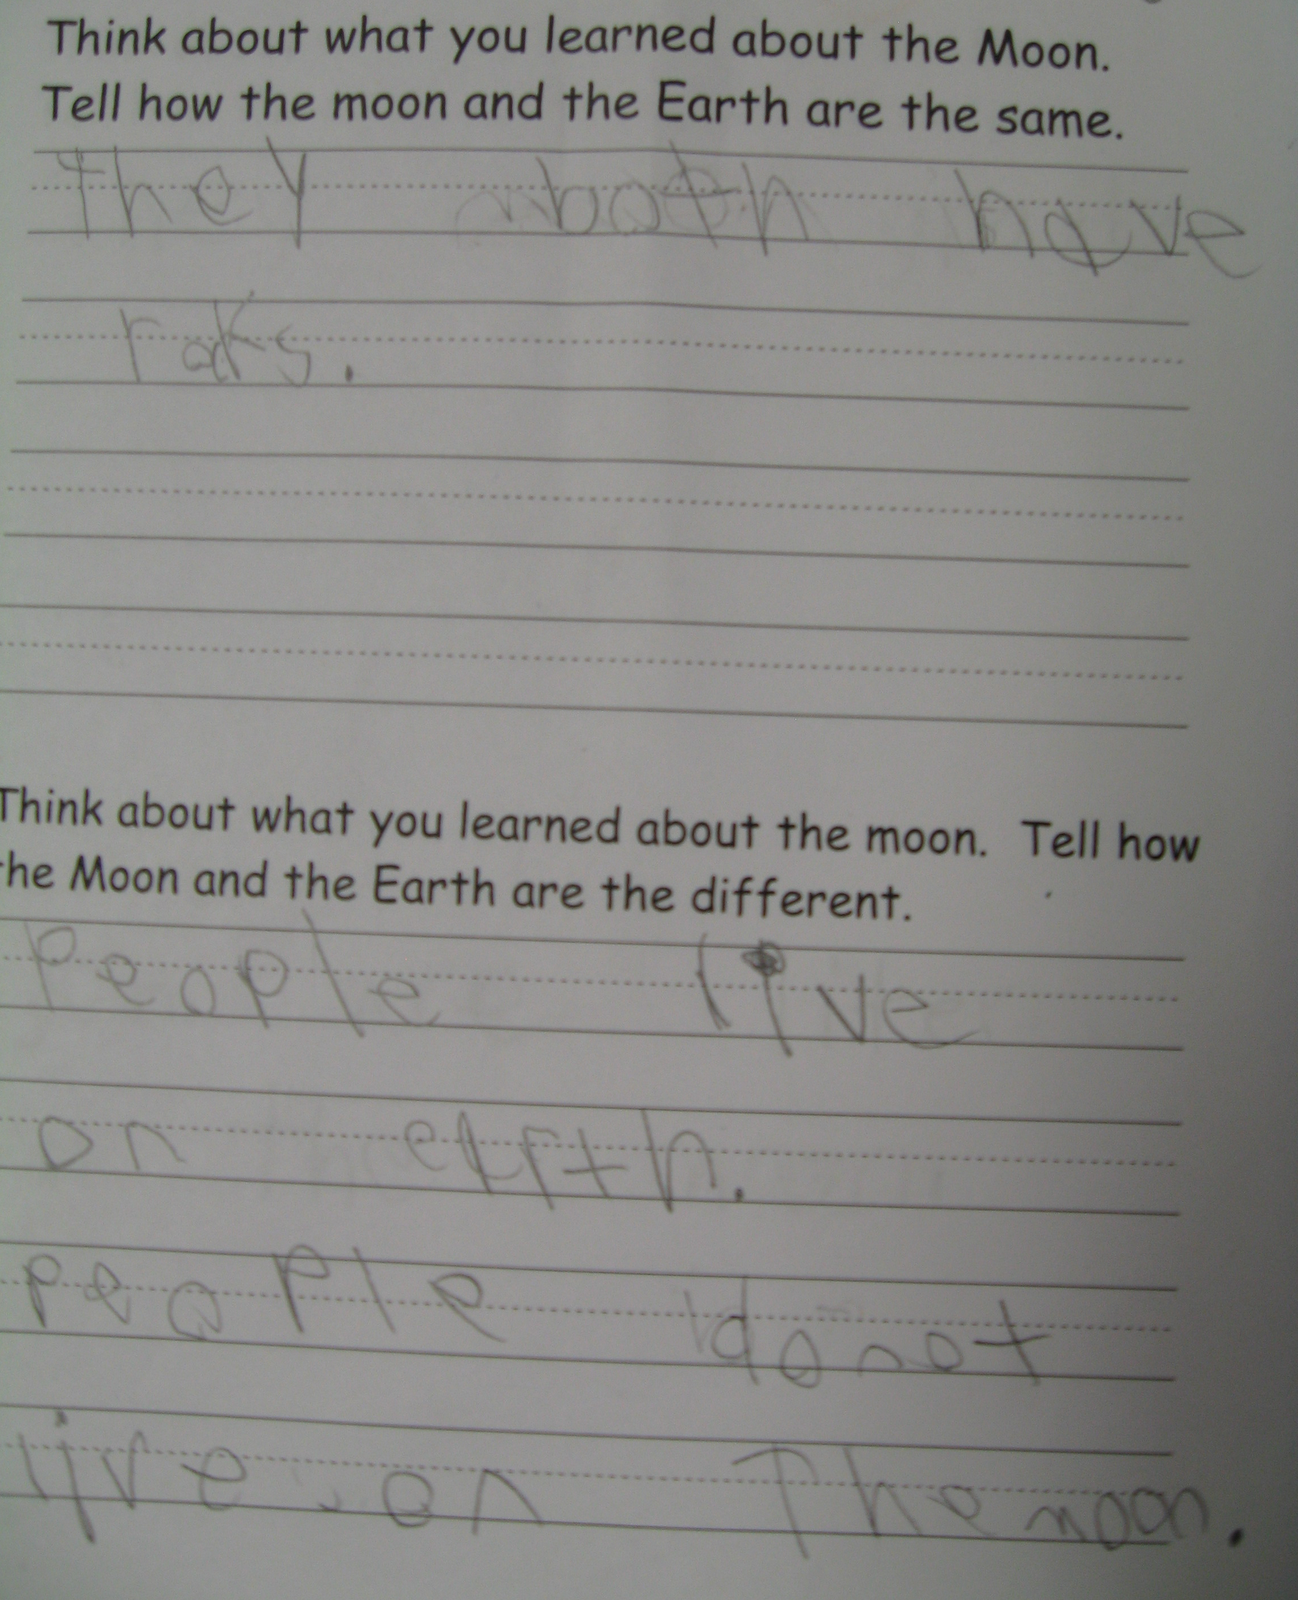 Think about what you learned about the Moon.
Tell how the moon and the Earth are the same.
They both have
roks.
Think about what you learned about the moon. Tell how
the Moon and the Earth are the different.
People live
on erth.
People do not
live on The moon.